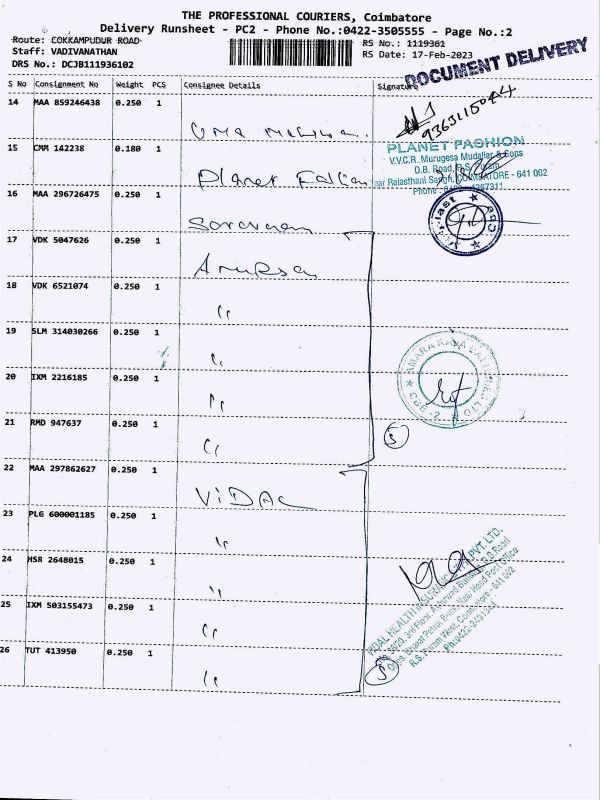 THE PROFESSIONAL COURIERS, Coimbatore
Delivery Runsheet - PC2 - Phone No.:0422-3505555 - Page No.:2
Route: COKKAMPUDUR ROAD
Staff: VADIVANATHAN
DRS No.: DCJB111936102
RS No.: 1119361
RS Date: 17-Feb-2023
DOCUMENT DELIVERY
S No Consignment No Weight PCS Consignee Details Signature
14 MAA 859246438 0.250 1
9363115044
15 CMM 142238 0.180 1 Planet
PLANET FASHION
V.V.C.R. Murugesa Mudaliar & Sons
D.B. Road, R.S. Puram
Rajasthani Sangh, COIMBATORE - 641 002
Phone
16 MAA 296726475 0.250 1
17 VDK 5047626 0.250 1
18 VDK 6521074 0.250 1 "
19 SLM 314030266 0.250 1 "
20 IXM 2216185 0.250 1 "
AMARA RAJA BATTERIES LTD
CBE-2
21 RMD 947637 0.250 1 "
5
22 MAA 297862627 0.250 1 ViDAL
23 PLG 600001185 0.250 1 "
24 HSR 2648015 0.250 1 "
VIDAL HEALTH INSURANCE TPA PVT. LTD.
3rd Floor
Opp. Bharat Petrol Bunk, Near Head Post Office
R.S. Puram West, Coimbatore - 641 002
25 IXM 503155473 0.250 1 "
26 TUT 413950 0.250 1 "
5